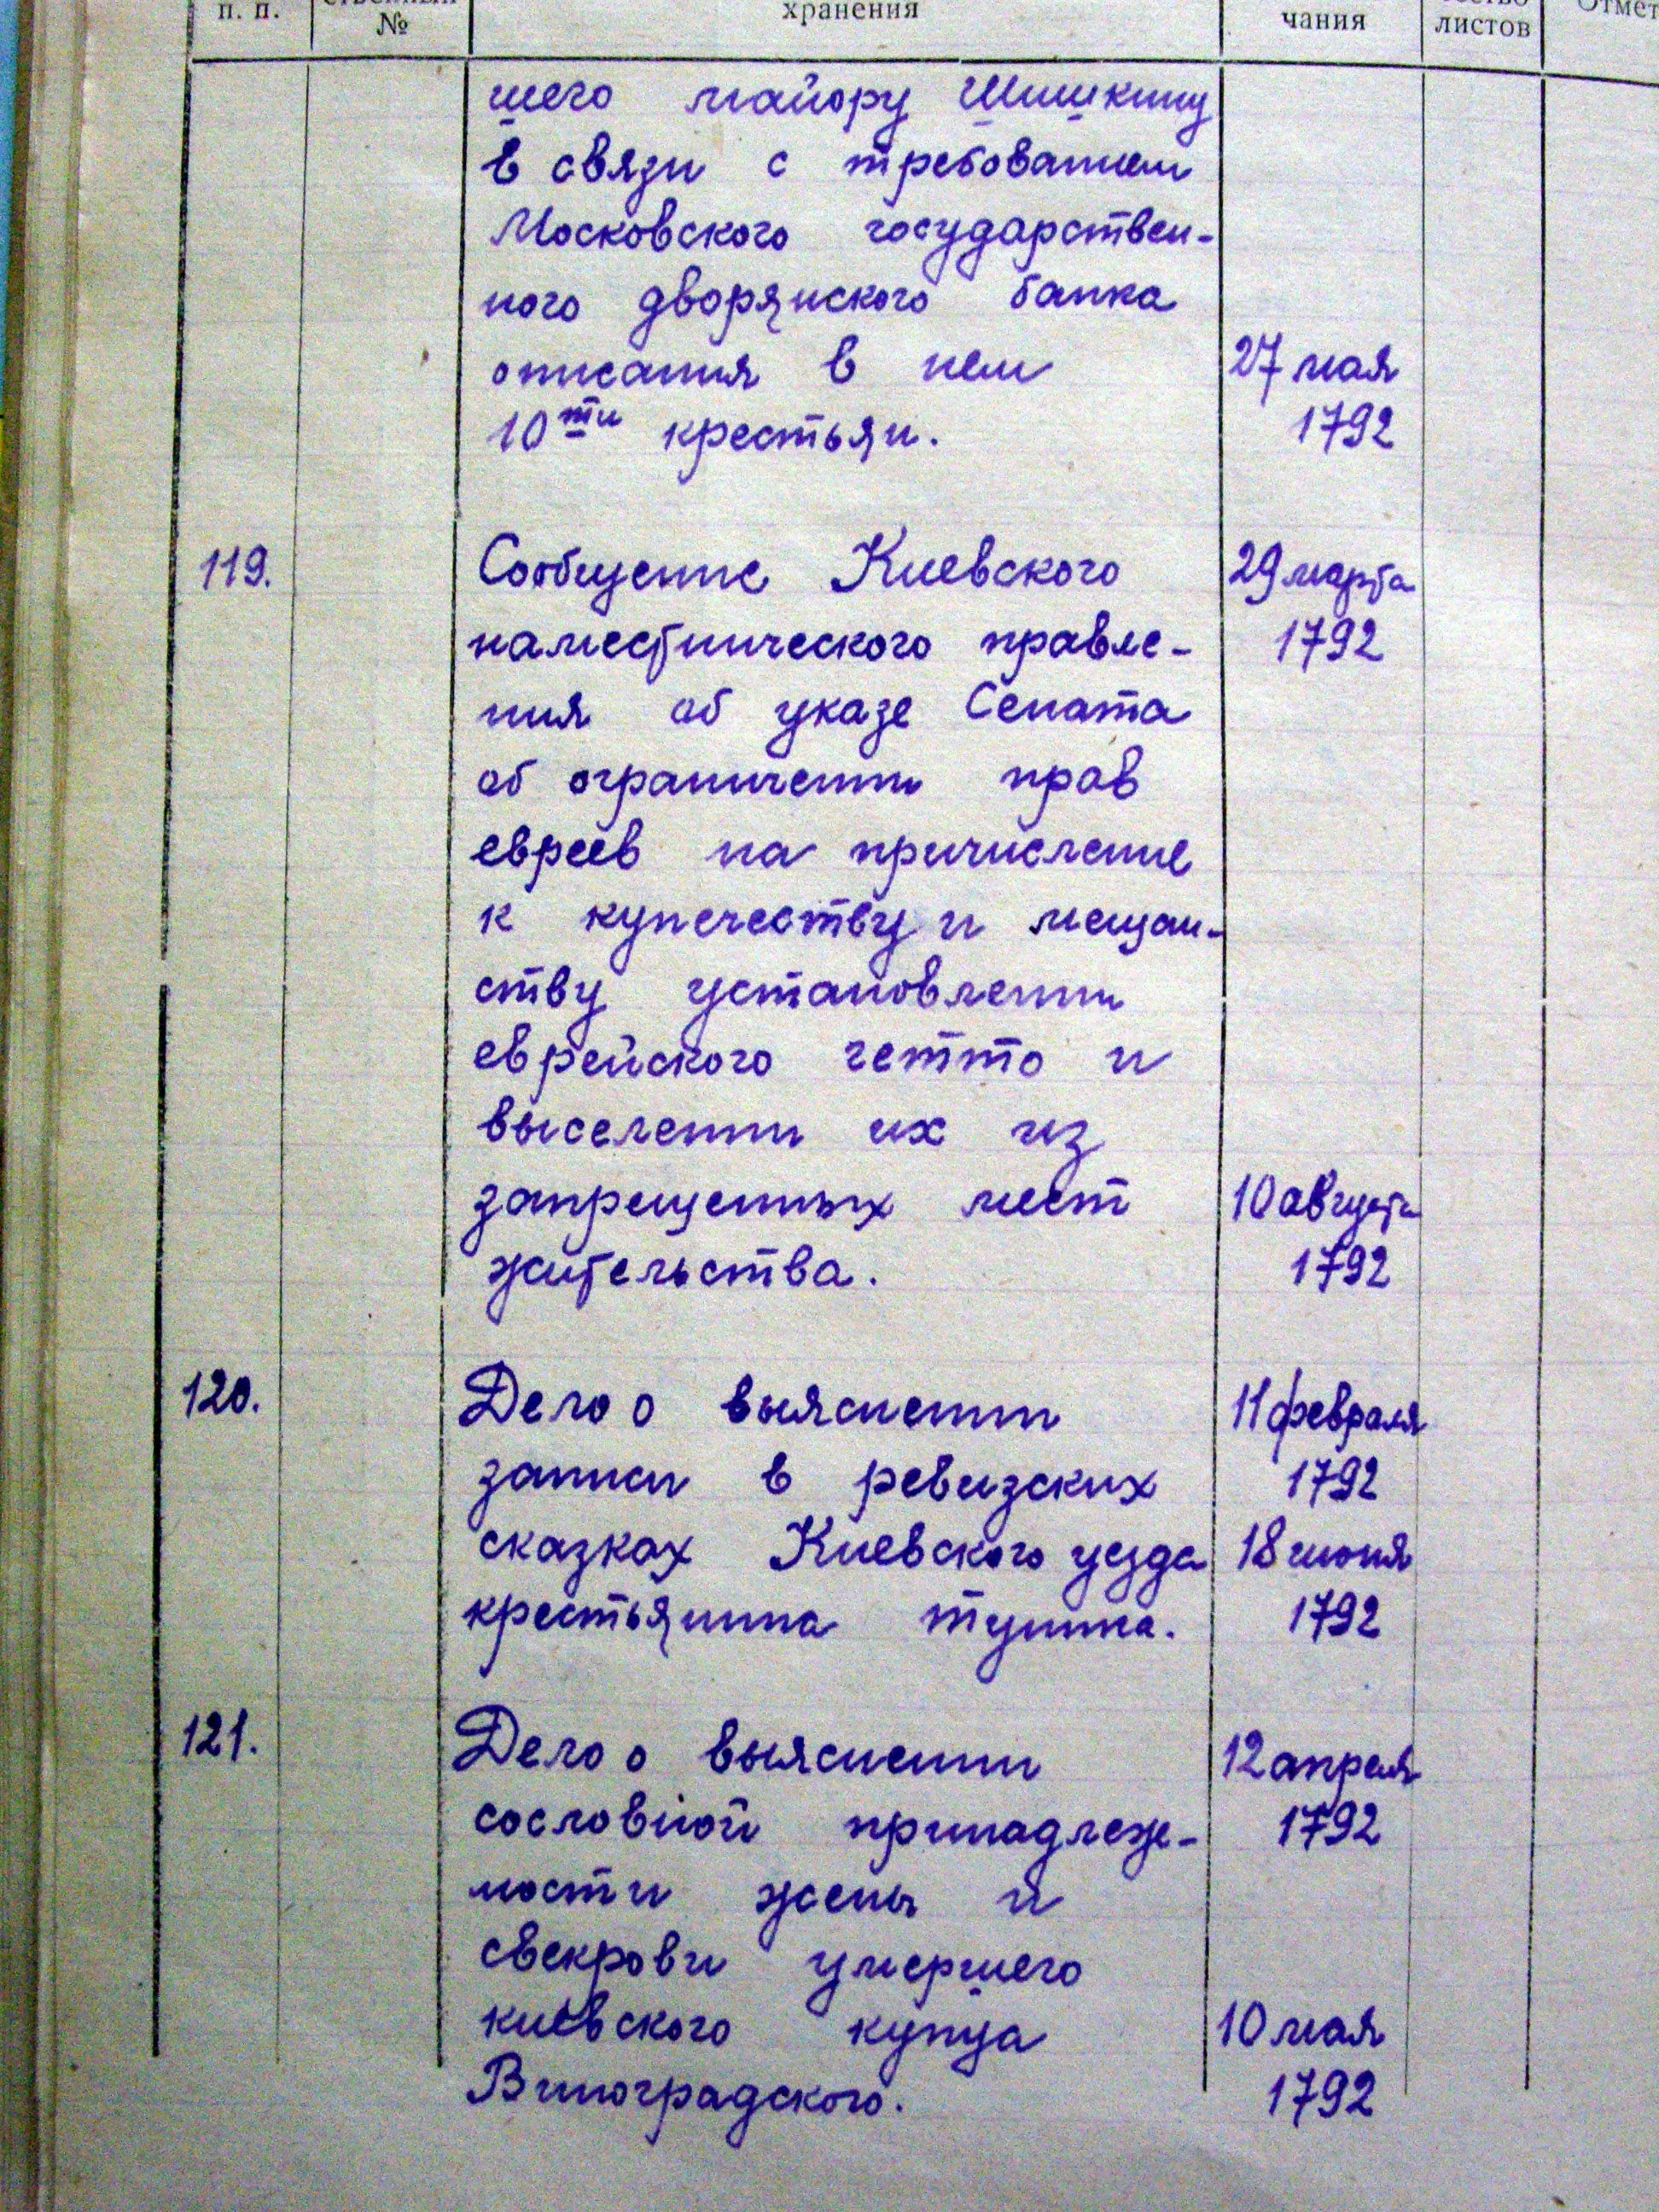 п. п.
№
хранения
чания
листов
шего майору Шишкину
в связи с требованием
Московского государствен-
ного дворянского банка
описания в нем 27 мая
10ти крестьян. 1792
119. Сообщение Киевского 29 марта
наместнического правле- 1792
ния об указе Сената
об ограничении прав
евреев на причисление
к купечеству и мещан-
ству установлении
еврейского гетто и
выселении их из
запрещенных мест 10 августа
жительства. 1792
120. Дело о выяснении 11 февраля
записи в ревизских 1792
сказках Киевского уезда 18 июня
крестьянина 1792
121. Дело о выяснении 12 апреля
сословной принадлеж- 1792
ности жены и
свекрови умершего
киевского купца 10 мая
Виноградского. 1792